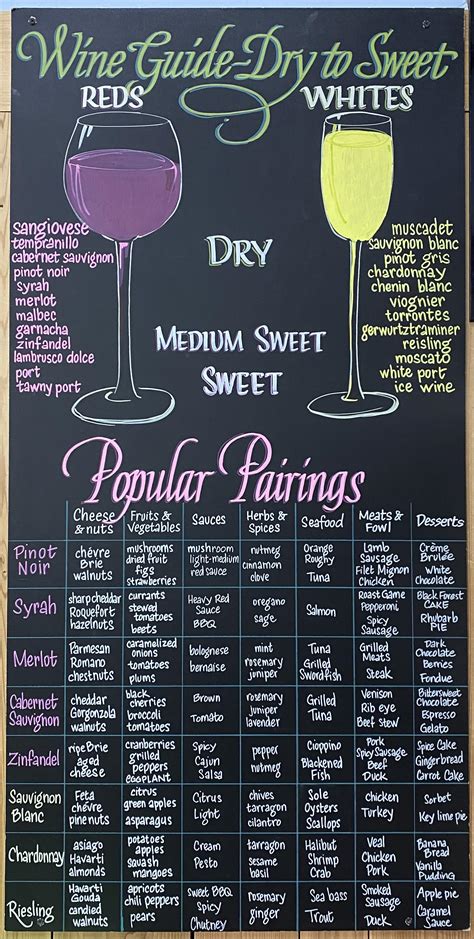 Wine Guide-Dry to Sweet
REDS
WHITES
sangiovese
tempranillo
cabernet sauvignon
pinot noir
syrah
merlot
malbec
garnacha
zinfandel
lambrusco dolce
port
tawny port
DRY
MEDIUM SWEET
SWEET
muscadet
sauvignon blanc
pinot gris
chardonnay
chenin blanc
viognier
torrontes
gerwurtztraminer
reisling
moscato
white port
ice wine
Popular Pairings
Cheese & nuts
Fruits & Vegetables
Sauces
Herbs & Spices
Seafood
Meats & Fowl
Desserts
Pinot Noir
chévre Brie walnuts
mushrooms dried fruit figs strawberries
mushroom light-medium red sauce
nutmeg cinnamon clove
Orange Roughy Tuna
Lamb Sausage Filet Mignon Chicken
Crème Brulee White Chocolate
Syrah
sharp cheddar Roquefort hazelnuts
currants stewed tomatoes beets
Heavy Red Sauce BBQ
oregano sage
Salmon
Roast Game Pepperoni Spicy Sausage
Black Forest CAKE Rhubarb PIE
Merlot
Parmesan Romano chestnuts
caramelized onions tomatoes plums
bolognese bernaise
mint rosemary juniper
Tuna Grilled Swordfish
Grilled Meats Steak
Dark Chocolate Berries Fondue
Cabernet Sauvignon
cheddar Gorgonzola walnuts
black cherries broccoli tomatoes
Brown Tomato
rosemary juniper lavender
Grilled Tuna
Venison Rib eye Beef Stew
Bittersweet Chocolate Espresso Gelato
Zinfandel
ripe Brie aged cheese
cranberries grilled peppers EGGPLANT
Spicy Cajun Salsa
pepper nutmeg
Cioppino Blackened Fish
Pork Spicy Sausage Beef Duck
Spice Cake Gingerbread Carrot Cake
Sauvignon Blanc
Feta chévre pine nuts
citrus green apples asparagus
Citrus Light
chives tarragon cilantro
Sole Oysters Scallops
Chicken Turkey
Sorbet Key lime pie
Chardonnay
asiago Havarti almonds
potatoes apples squash mangoes
Cream Pesto
tarragon sesame basil
Halibut Shrimp Crab
Veal Chicken Pork
Banana Bread Vanilla Pudding
Riesling
Havarti Gouda candied walnuts
apricots chili peppers pears
Sweet BBQ Spicy Chutney
rosemary ginger
Sea bass Trout
Smoked Sausage Duck
Apple pie Caramel Sauce